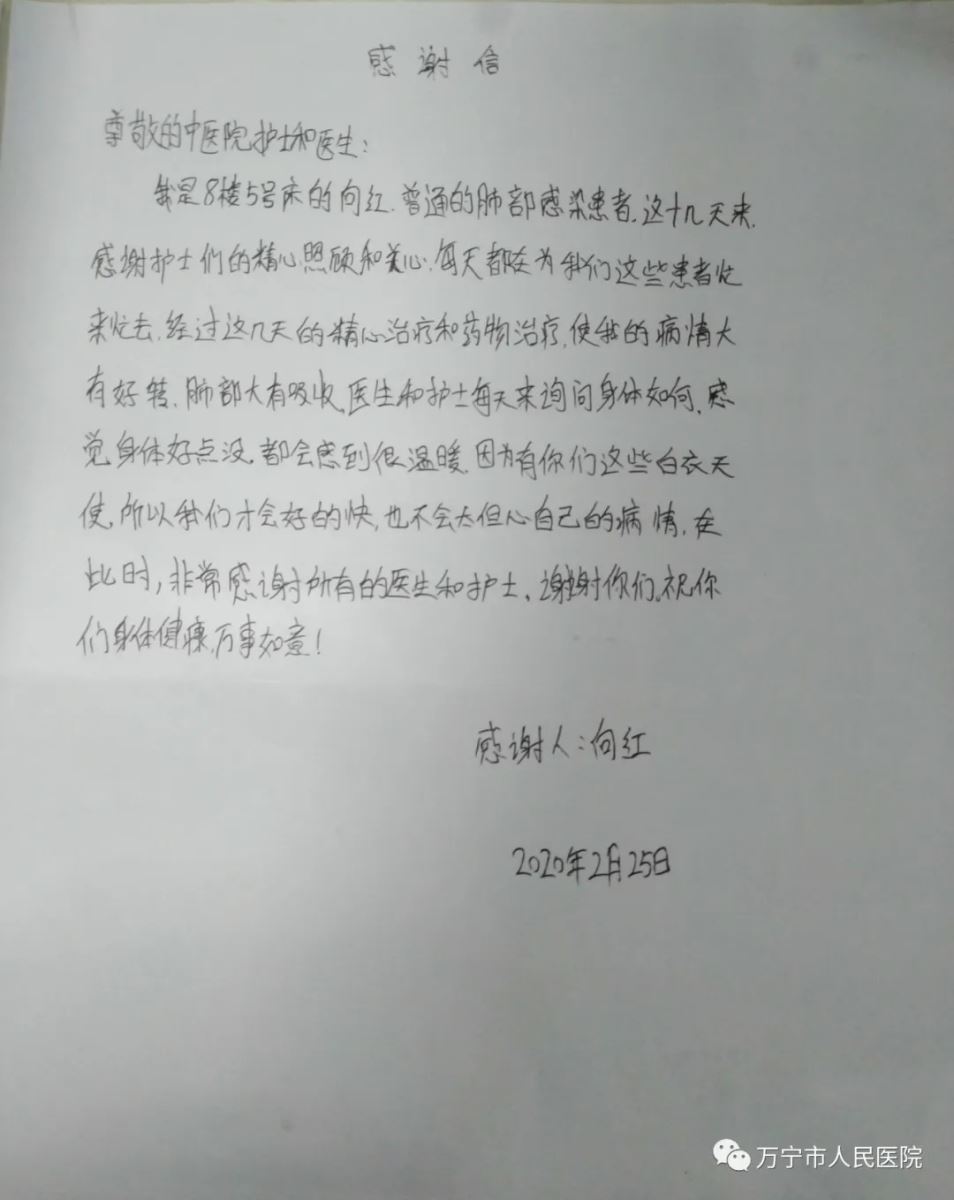 感谢信
尊敬的中医院护士和医生：
我是8楼5号床的向红.普通的肺部感染患者.这十几天来.
感谢护士们的精心照顾和关心.每天都在为我们这些患者忙
来忙去.经过这几天的精心治疗和药物治疗,使我的病情大
有好转.肺部大有吸收.医生和护士每天来询问身体如何.感
觉身体好点没.都会感到很温暖.因为有你们这些白衣天
使,所以我们才会好的快,也不会太但心自己的病情.在
此时,非常感谢所有的医生和护士.谢谢你们.祝你
们身体健康.万事如意!
感谢人:向红
2020年2月25日
万宁市人民医院